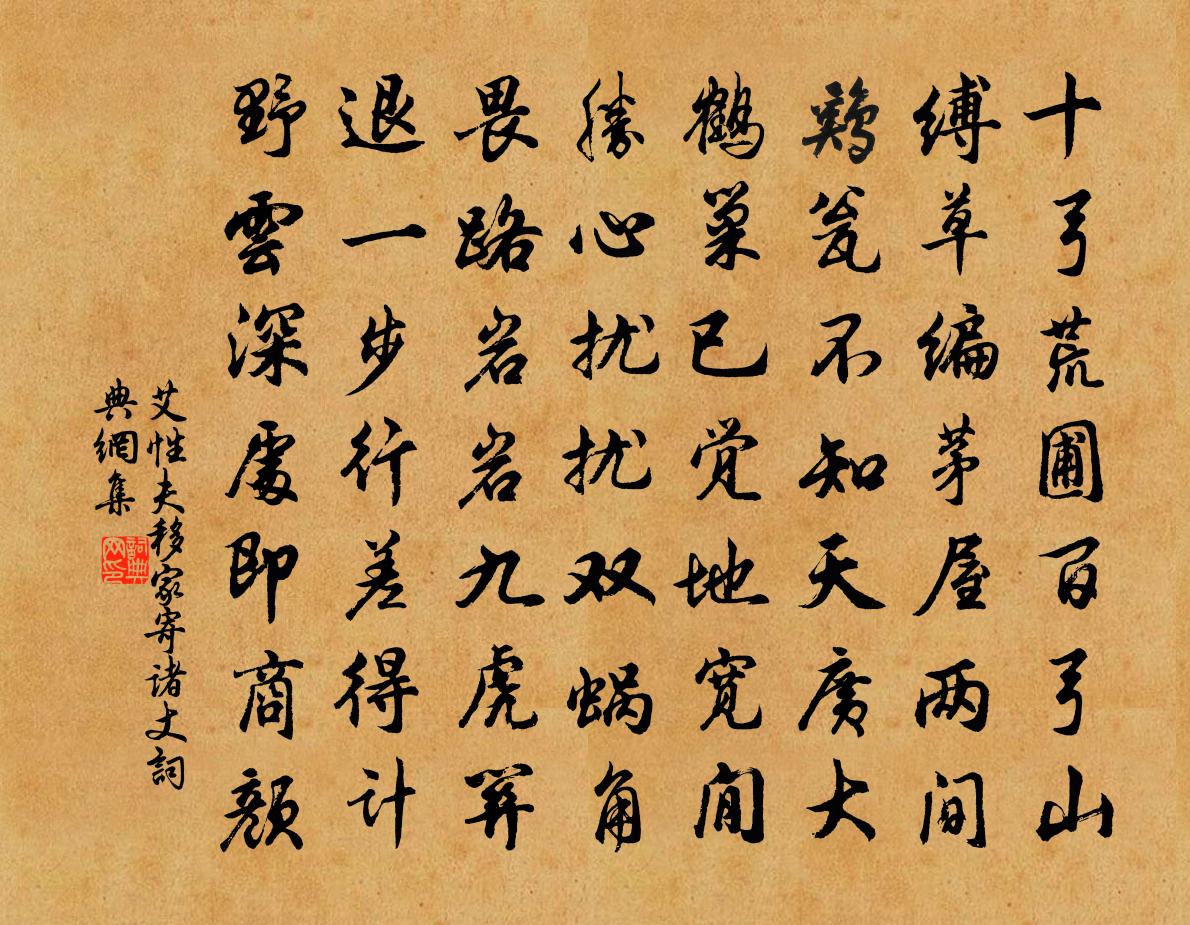 十弓荒圃百弓山
缚草编茅屋两间
鷄瓮不知天廣大
鶴巢已觉地宽閒
勝心扰扰双蜗角
畏路岩岩九虎關
退一步行差得计
野雲深處即商颜
艾性夫移家寄诸丈詞
典網集
詞典
网印